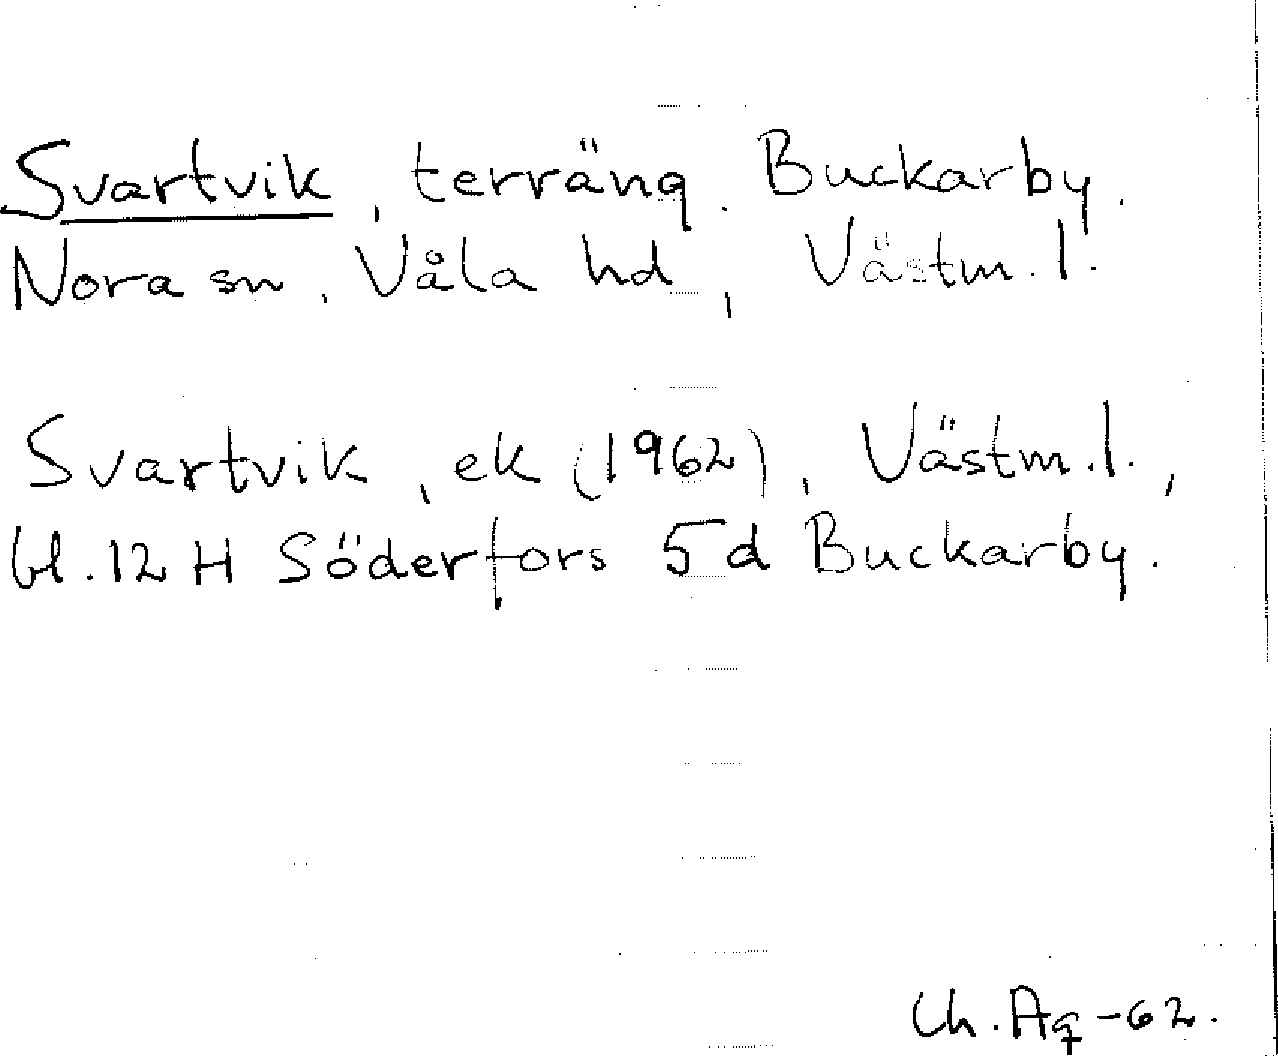 Svartvik, terräng. Buckarby,
Nora sn, Våla hd, Västm.l.
Svartvik, ek (1962), Västm.l.,
bl. 12 H Söderfors 5 d Buckarby.
Ch. Ag -62.